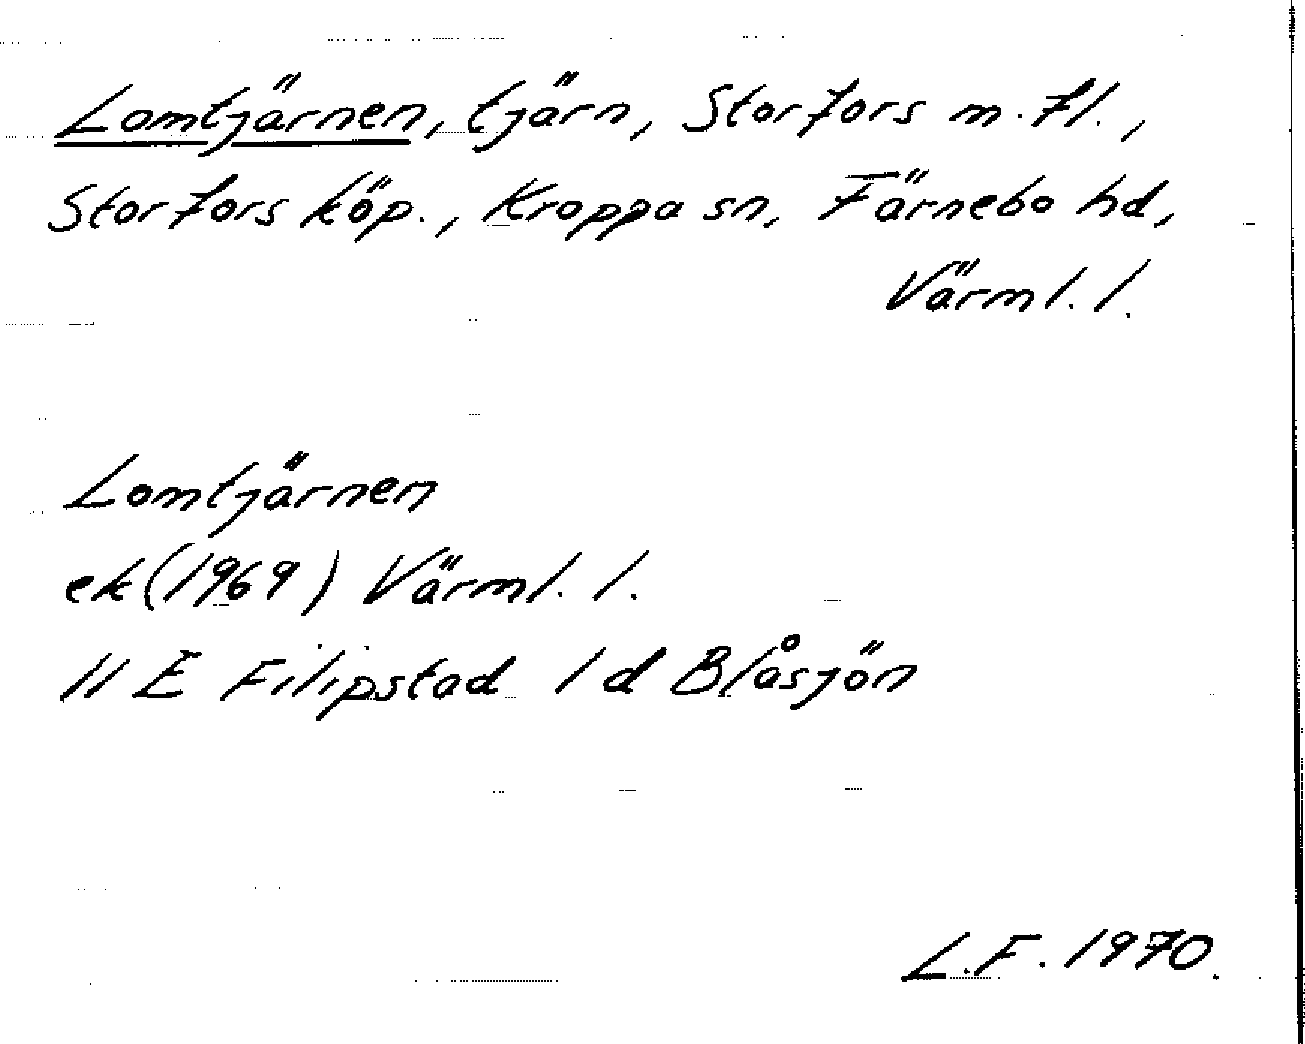 Lomtjärnen, tjärn, Storfors m. fl.,
Storfors köp., Kroppa sn, Färnebo hd,
Värml. l.
Lomtjärnen
ek (1969) Värml. l.
11 E Filipstad 1 d Blåsjön
L.F. 1970.